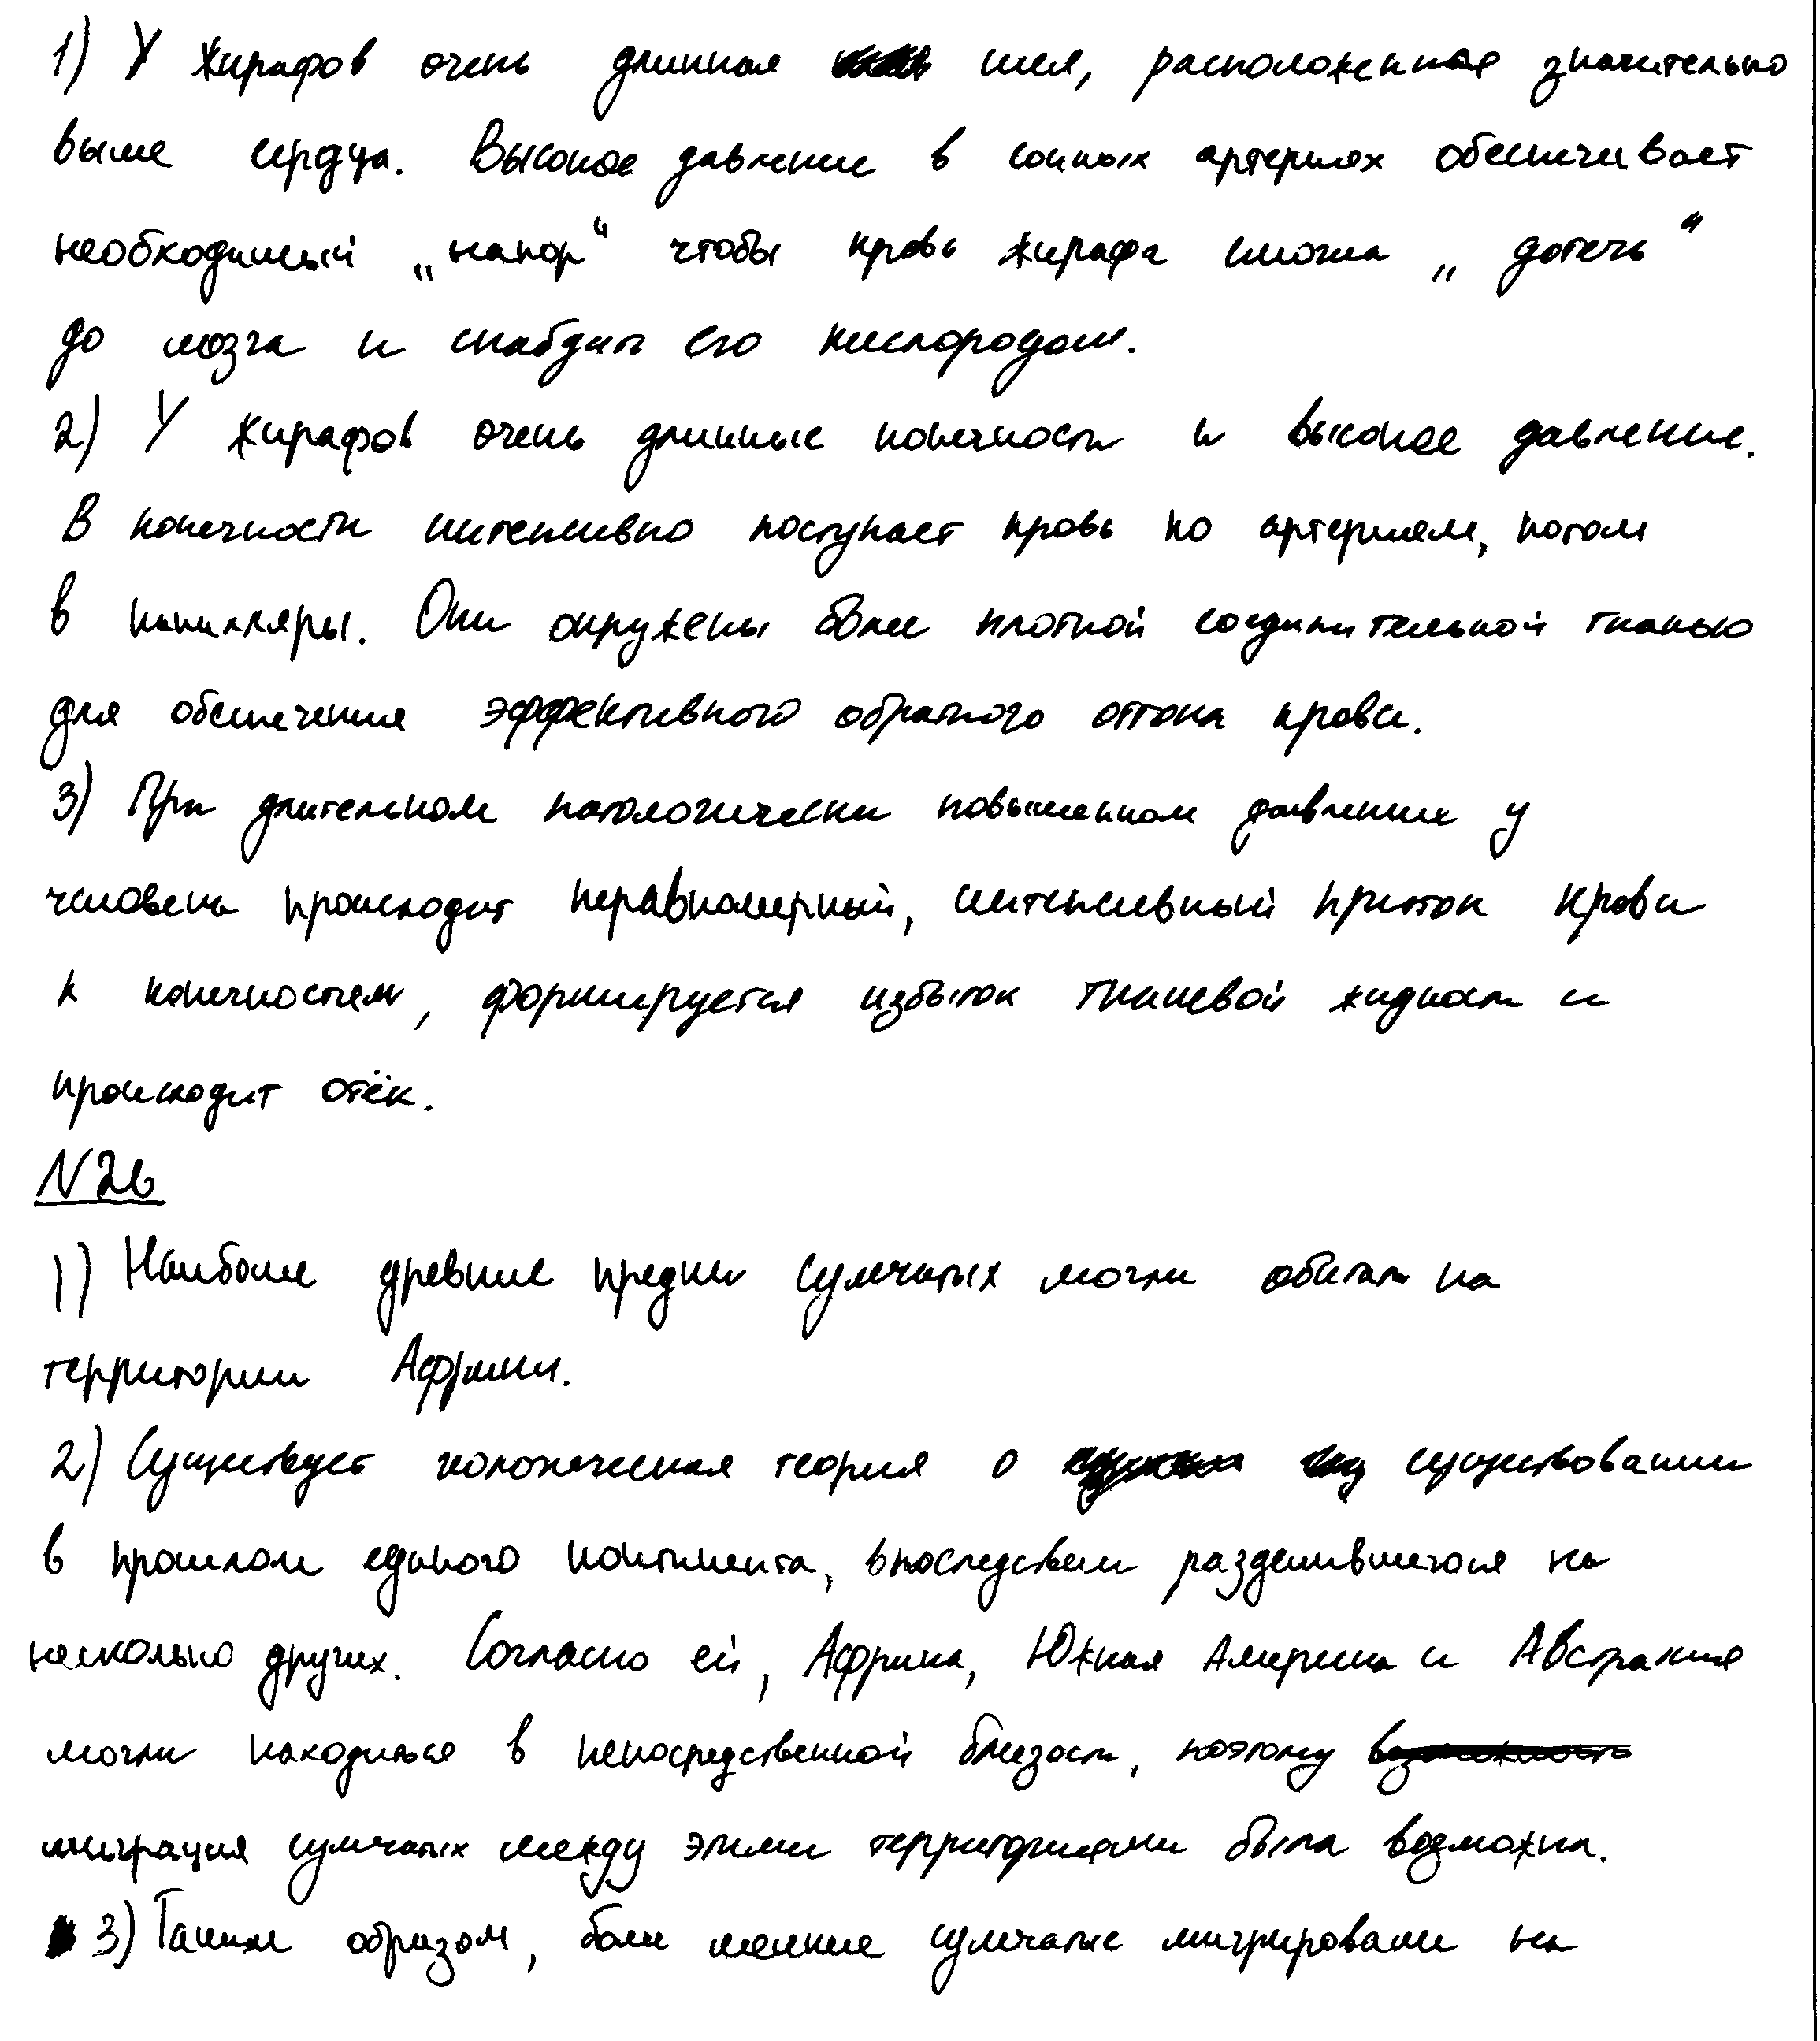 1) У жирафов очень длинная шея, расположенная значительно
выше сердца. Высокое давление в сонных артериях обеспечивает
необходимый „напор“ чтобы кровь жирафа смогла „дотечь“
до мозга и снабдить его кислородом.
2) У жирафов очень длинные конечности и высокое давление.
В конечности интенсивно поступает кровь по артериям, потом
в капилляры. Они окружены более плотной соединительной тканью
для обеспечения эффективного обратного оттока крови.
3) При длительном патологически повышенном давлении у
человека происходит неравномерный, интенсивный приток крови
к конечностям, формируется избыток тканевой жидкости и
происходит отёк.
N26
1) Наиболее древние предки сумчатых могли обитать на
территории Африки.
2) Существует теория о существовании
в прошлом единого континента, впоследствии разделившегося на
несколько других. Согласно ей, Африка, Южная Америка и Австралия
могли находиться в непосредственной близости, поэтому
миграция сумчатых между этими территориями была возможна.
3) Таким образом, более мелкие сумчатые мигрировали на